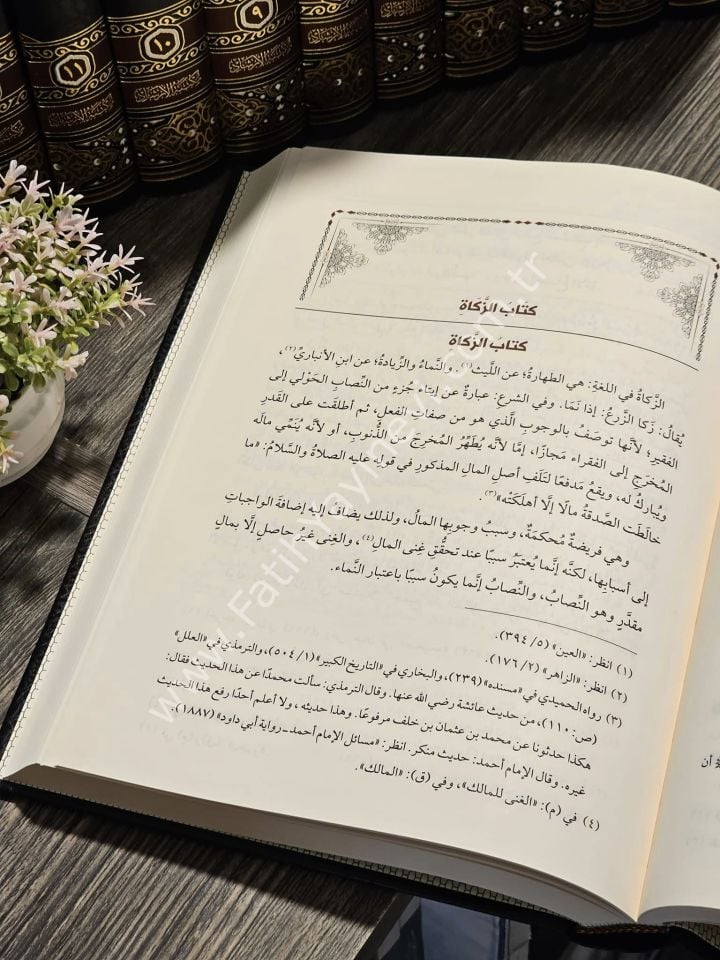 ٩
١٠
١١
كتاب الزَّكاة
كتاب الزَّكاة
الزَّكاةُ في اللغةِ: هي الطهارةُ؛ عن اللَّيثِ(١). والنَّماءُ والزِّيادةُ؛ عن ابنِ الأنباريِّ(٢)،
يُقالُ: زَكا الزَّرعُ: إذا نَمَا. وفي الشرعِ: عبارةٌ عن إيتاءِ جُزءٍ من النِّصابِ الحَوْليِّ إلى
الفقيرِ؛ لأنَّها توصَفُ بالوجوبِ الَّذي هو من صفاتِ الفعلِ، ثم أطلقَت على القَدرِ
المُخرَجِ إلى الفقراء مَجازًا، إمَّا لأنَّه يُطَهِّرُ المُخرِجَ من الذُّنوبِ، أو لأنَّه يُنَمِّي مالَه
ويُباركُ له، ويقعُ مَدفعًا لتَلَفِ أصلِ المالِ المذكورِ في قولِه عليه الصلاةُ والسَّلامُ: «ما
خالَطَت الصَّدقةُ مالًا إلَّا أهلَكَتْه»(٣).
وهي فريضةٌ مُحكَمَةٌ، وسببُ وجوبِها المالُ، ولذلك يضافُ إليه إضافةَ الواجباتِ
إلى أسبابِها، لكنَّه إنَّما يُعتَبَرُ سببًا عند تحقُّقِ غِنى المالِ(٤)، والغنى غيرُ حاصلٍ إلَّا بمالٍ
مقدَّرٍ وهو النِّصابُ، والنِّصابُ إنَّما يكونُ سببًا باعتبار النَّماء.
(١) انظر: «العين» (٥/ ٣٩٤).
(٢) انظر: «الزاهر» (٢/ ١٧٦).
(٣) رواه الحميدي في «مسنده» (٢٣٩)، والبخاري في «التاريخ الكبير» (١/ ٥٠٤)، والترمذي في «العلل»
(ص: ١١٠)، من حديث عائشة رضي الله عنها. وقال الترمذي: سألت محمدًا عن هذا الحديث فقال:
هكذا حدثونا عن محمد بن عثمان بن خلف مرفوعًا. وهذا حديثه، ولا أعلم أحدًا رفع هذا الحديث
غيره. وقال الإمام أحمد: حديث منكر. انظر: «مسائل الإمام أحمد ـ رواية أبي داود» (١٨٨٧).
(٤) في (م): «الغنى للمالك»، وفي (ق): «المالك».
أن
www.FatihYayinevi.com.tr